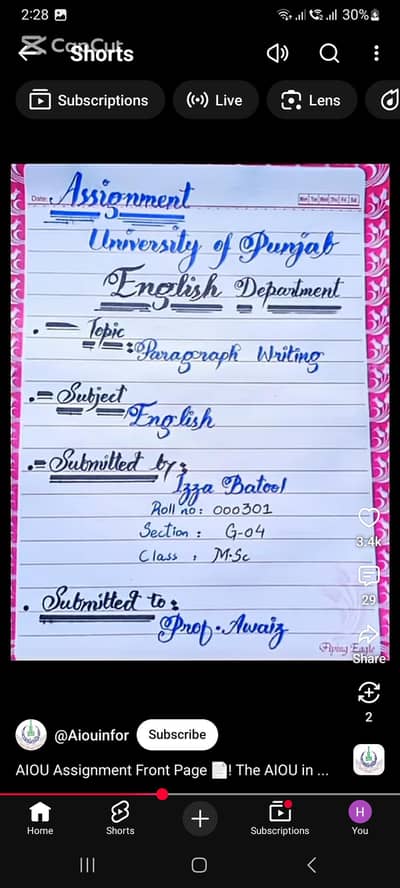 2:28 30%
CapCut
Shorts
Subscriptions Live Lens
Date: Mon Tue Wed Thu Fri Sat
Assignment
University of Punjab
English Department
Topic
:Paragraph Writing
Subject
English
Submitted by:
Izza Batool
Roll no: 000301
Section : G-04
Class : M.Sc
Submitted to:
Prof. Awaiz
Flying Eagle
3.4k
29
Share
2
@Aiouinfor Subscribe
AIOU Assignment Front Page 📄! The AIOU in ...
H
Home Shorts Subscriptions You